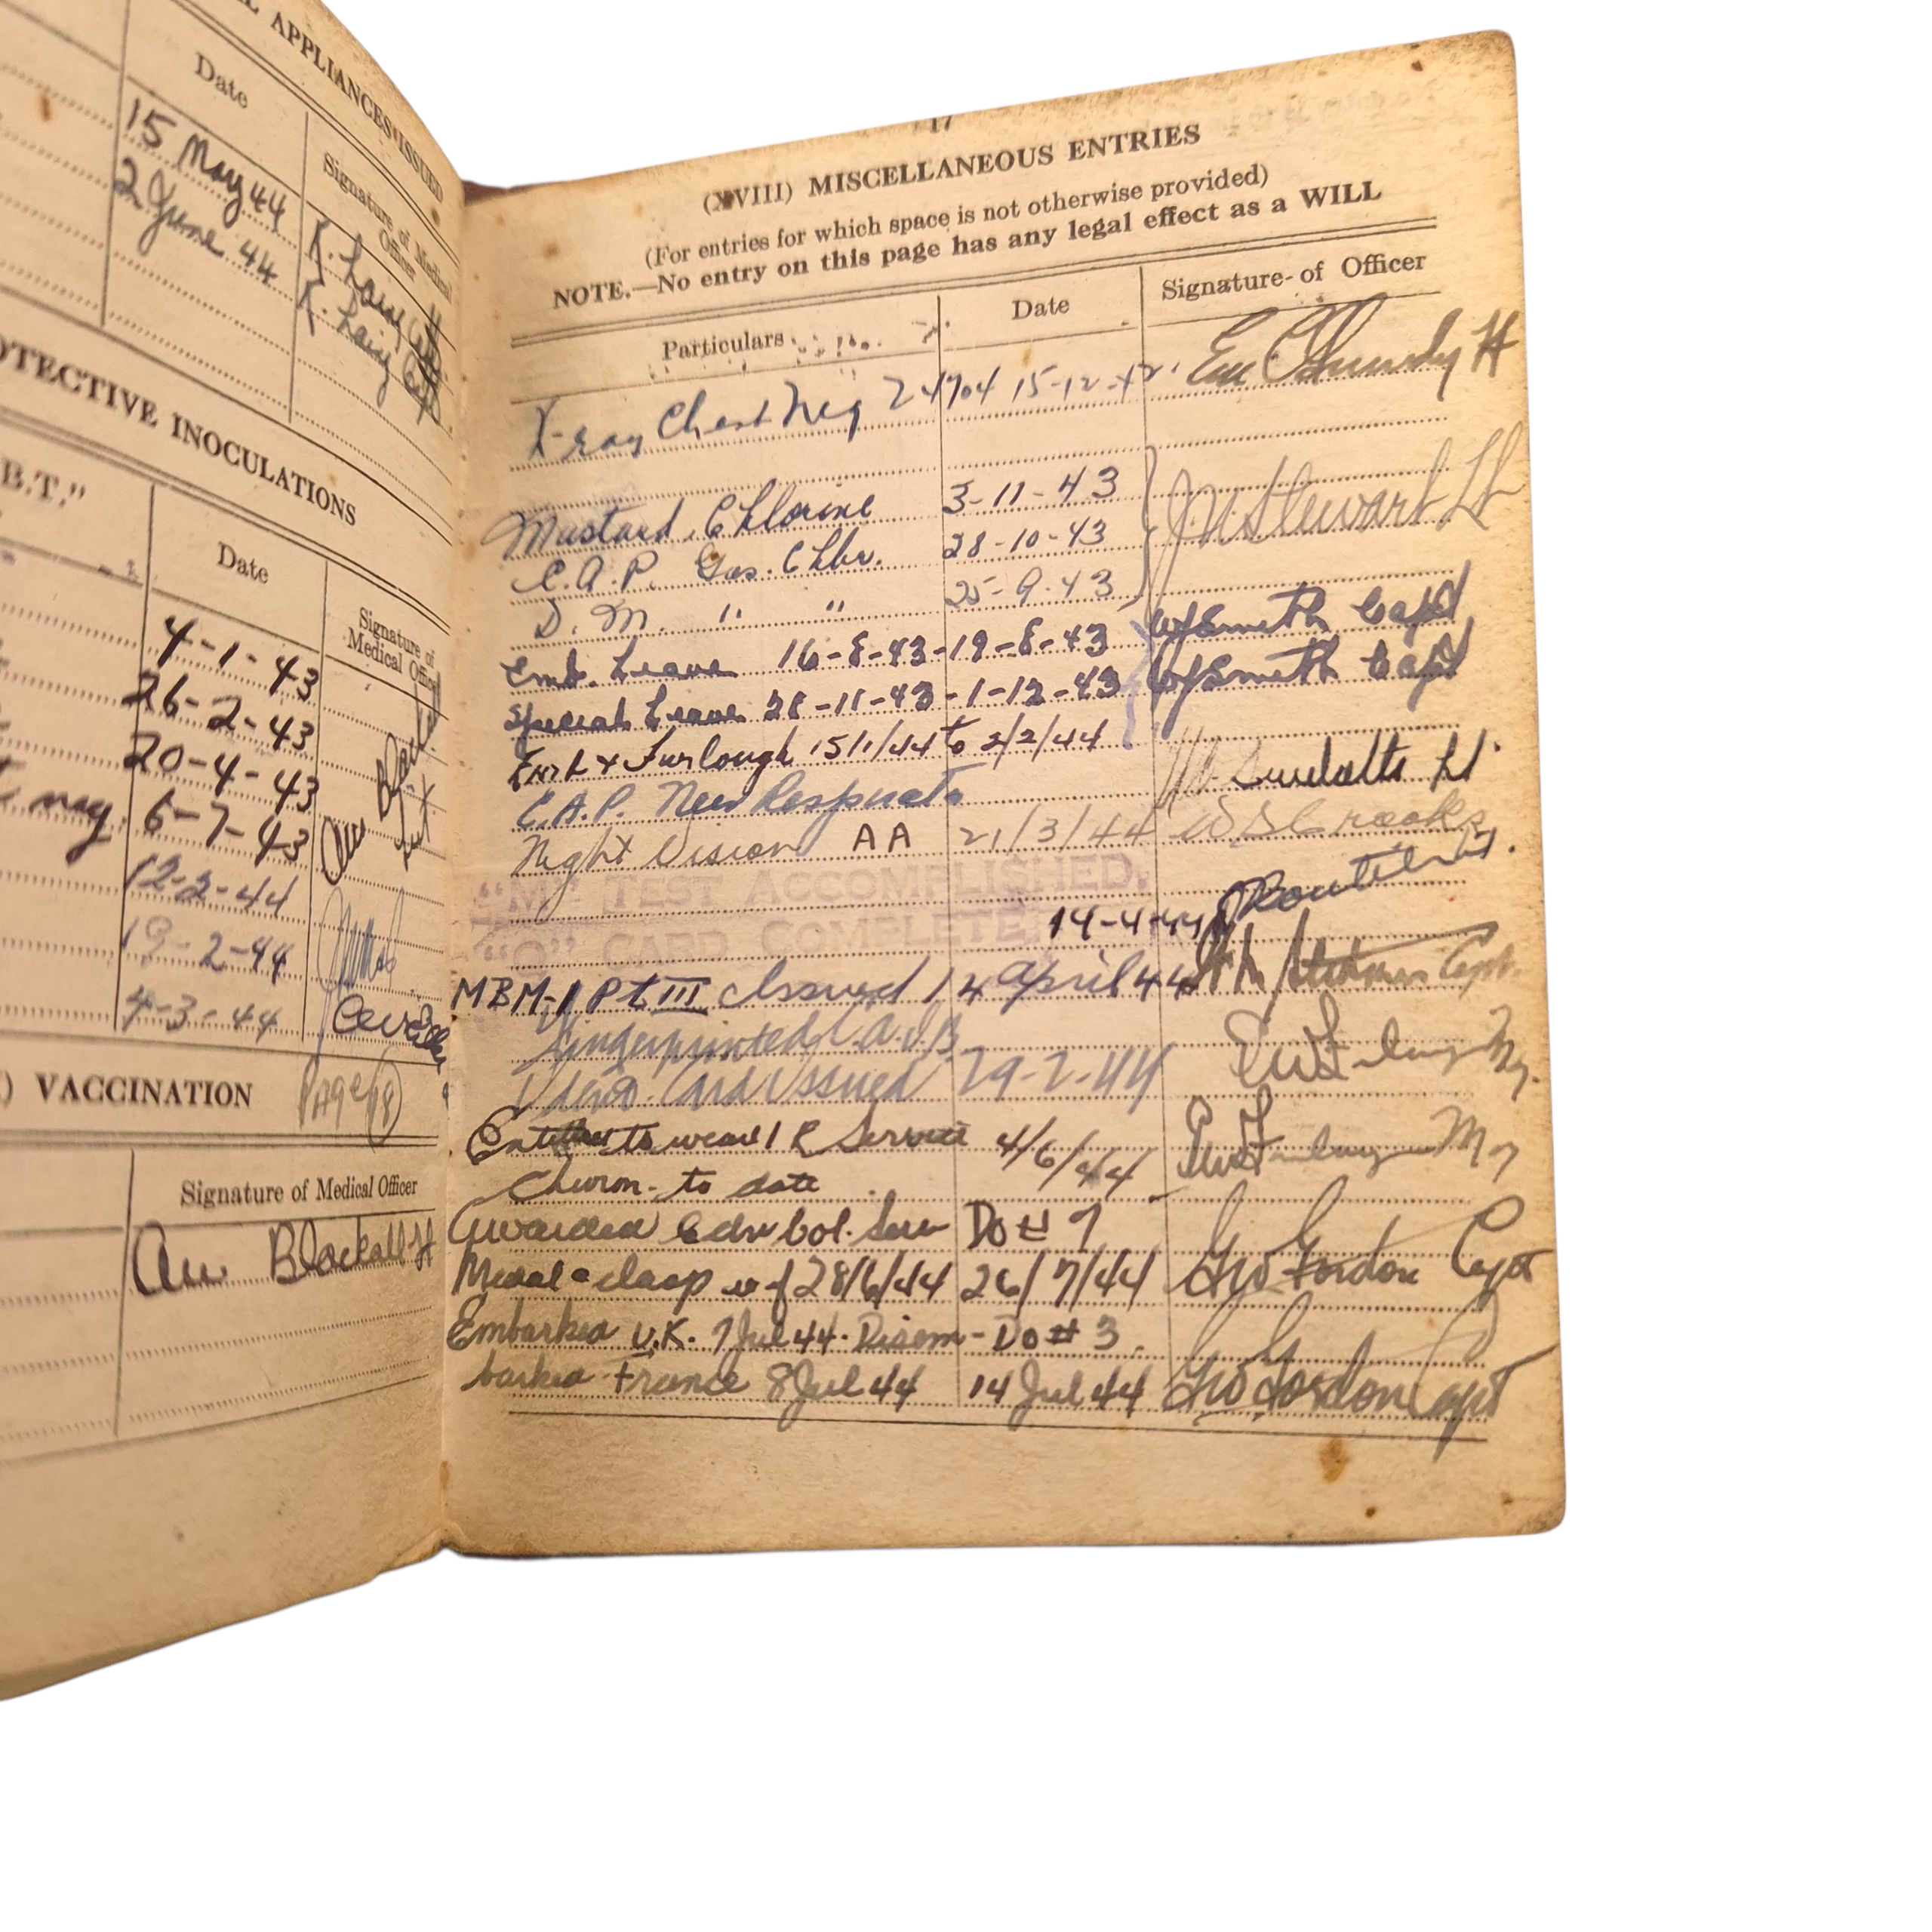 L APPLIANCES ISSUED
Date
Signature of Medical
Officer
15 May 44
K. Laing Capt
2 June 44
K. Laing Capt
OTECTIVE INOCULATIONS
B.T."
Date
Signature of
Medical Offic
4-1-43
26-2-43
20-4-43
may 6-7-43
12-2-44
19-2-44
4-3-44
VACCINATION
Page 18
Signature of Medical Officer
AW Blackall Lt
17
(XVIII) MISCELLANEOUS ENTRIES
(For entries for which space is not otherwise provided)
NOTE.—No entry on this page has any legal effect as a WILL
Particulars
Date
Signature of Officer
X-ray Chest Neg 24704 15-12-42
Mustard, Chlorine 3-11-43
C.A.P. Gas. Chbr. 28-10-43 Stewart Lt
D.M. " " 25-9-43
Emb. Leave 16-8-43-19-8-43 Smith Capt
Special Leave 28-11-43-1-12-43 Smith Capt
Furlough 15/1/44 to 2/2/44
C.A.P. New Respirator Lt.
Night Vision AA 21/3/44 Crooks
"M" TEST ACCOMPLISHED.
"O" CARD COMPLETE
14-4-44
MBM-1 Pt III Issued 14 April 44 Capt.
Fingerprinted
Ident. Card Issued 29-2-44
Entitled to wear 1 R Service 4/6/44
Chevron to date
Awarded Cdn Vol. Serv DO # 7
Medal & clasp wef 28/6/44 26/7/44 GW Gordon Capt
Embarked U.K. 7 Jul 44. Disem- DO # 3
barked France 8 Jul 44 14 Jul 44 GW Gordon Capt